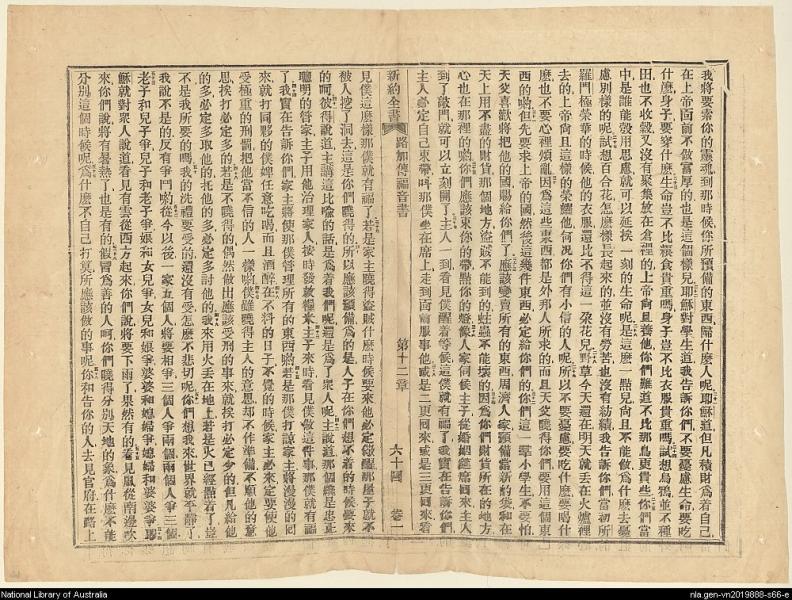 我將要索你的靈魂到那時候你所預備的東西歸什麼人呢耶穌道但凡積財爲着自己
在上帝面前不做富厚的也是這個樣兒耶穌對學生道我告訴你們不要憂慮生命要吃
什麼身子要穿什麼生命豈不比糧食貴重嗎身子豈不比衣服貴重嗎試想烏鴉並不種
田也不收穀又沒有聚集放在倉裡的上帝尙且養他你們難道不比那鳥更貴些你們當
中是誰能彀用思慮就可以延挨一刻的生命呢是這麼一點兒尙且不能做爲什麼去憂
慮別樣的呢試想百合花怎麼樣長起來的並沒有勞苦也沒有紡績我告訴你們當初所
羅門極榮華的時候他的衣服還比不得這一朶花兒野草今天還在明天就丟在火爐裡
去的上帝尙且這樣的榮耀他何况你們有小信的人呢所以不要憂慮要吃什麼要喝什
麼也不要心裡煩亂因爲這些東西都是外邦人所求的而且天父曉得你們要用這個東
西的喲但先要求上帝的國然後這幾件東西必定給你們的你們這一羣小學生不要怕
天父喜歡將把他的國賜給你們了應該變賣所有的東西周濟人家預備當新的錢和在
天上用不盡的財貨那個地方盜賊不能到的蛀蟲不能壞的因爲你們財貨所在的地方
心也在那裡的喲你們應該束你的帶點你的燈像人家伺候主子從婚姻筵席回來主人
到了敲門就可以立刻開了主人一到看見僕醒着等候這僕就有福了我實在告訴你們
主人必定自己束帶叫那僕坐在席上走到面前服事他或是二更回來或是三更回來看
新約全書
路加傳福音書
第十二章
六十圖
卷一
見僕這麼樣那僕就有福了若是家主曉得盜賊什麼時候要來他必定儆醒那屋子就不
被人挖了洞去這是你們曉得的所以應該預備爲的是人子在你們想不着的時候要來
的呵彼得說道主講這比喩的話是爲着我們呢還是爲了衆人呢主說道那個纔是忠直
聰明的管家主子用他治理家人按時發散糧米主子來時看見僕做這件事那僕就有福
了我實在告訴你們家主將使那僕管理所有的東西喲若是那僕打諒家主將漫漫的回
來就打同夥的僕婢任意吃喝而且酒醉在不待的日子不覺的時候家主必來定要使他
受極重的刑罰把他當不信的人一樣喲僕雖曉得主人的意思却不作準備不順他的意
思挨打必定多的若是不曉得的偶然做出應該受刑的事來就挨打必定少的但凡給他
的多必定多取他的托他的多必定多討他的我來用火丟在地上若是火已經點着了豈
不是我所要的嗎我的洗禮要受的還沒有受怎麼不悲切呢你們想我來世界就平靜了
我說不是的反有爭鬥喲從今以後一家五個人將要相爭三個人爭兩個兩個人爭三個
老子和兒子爭兒子和老子爭娘和女兒爭女兒和娘爭婆婆和媳婦爭媳婦和婆婆爭耶
穌就對衆人說道看見有雲從西方起來你們說將要下雨了果然有的看見風從南邊吹
來你們說將有暑熱了也是有的假冒爲善的人呵你們曉得分別天地的象爲什麼不能
分別這個時候呢爲什麼不自己打算所應該做的事呢你和告你的人去見官府在路上
National Library of Australia
nla.gen-vn2019888-s66-e